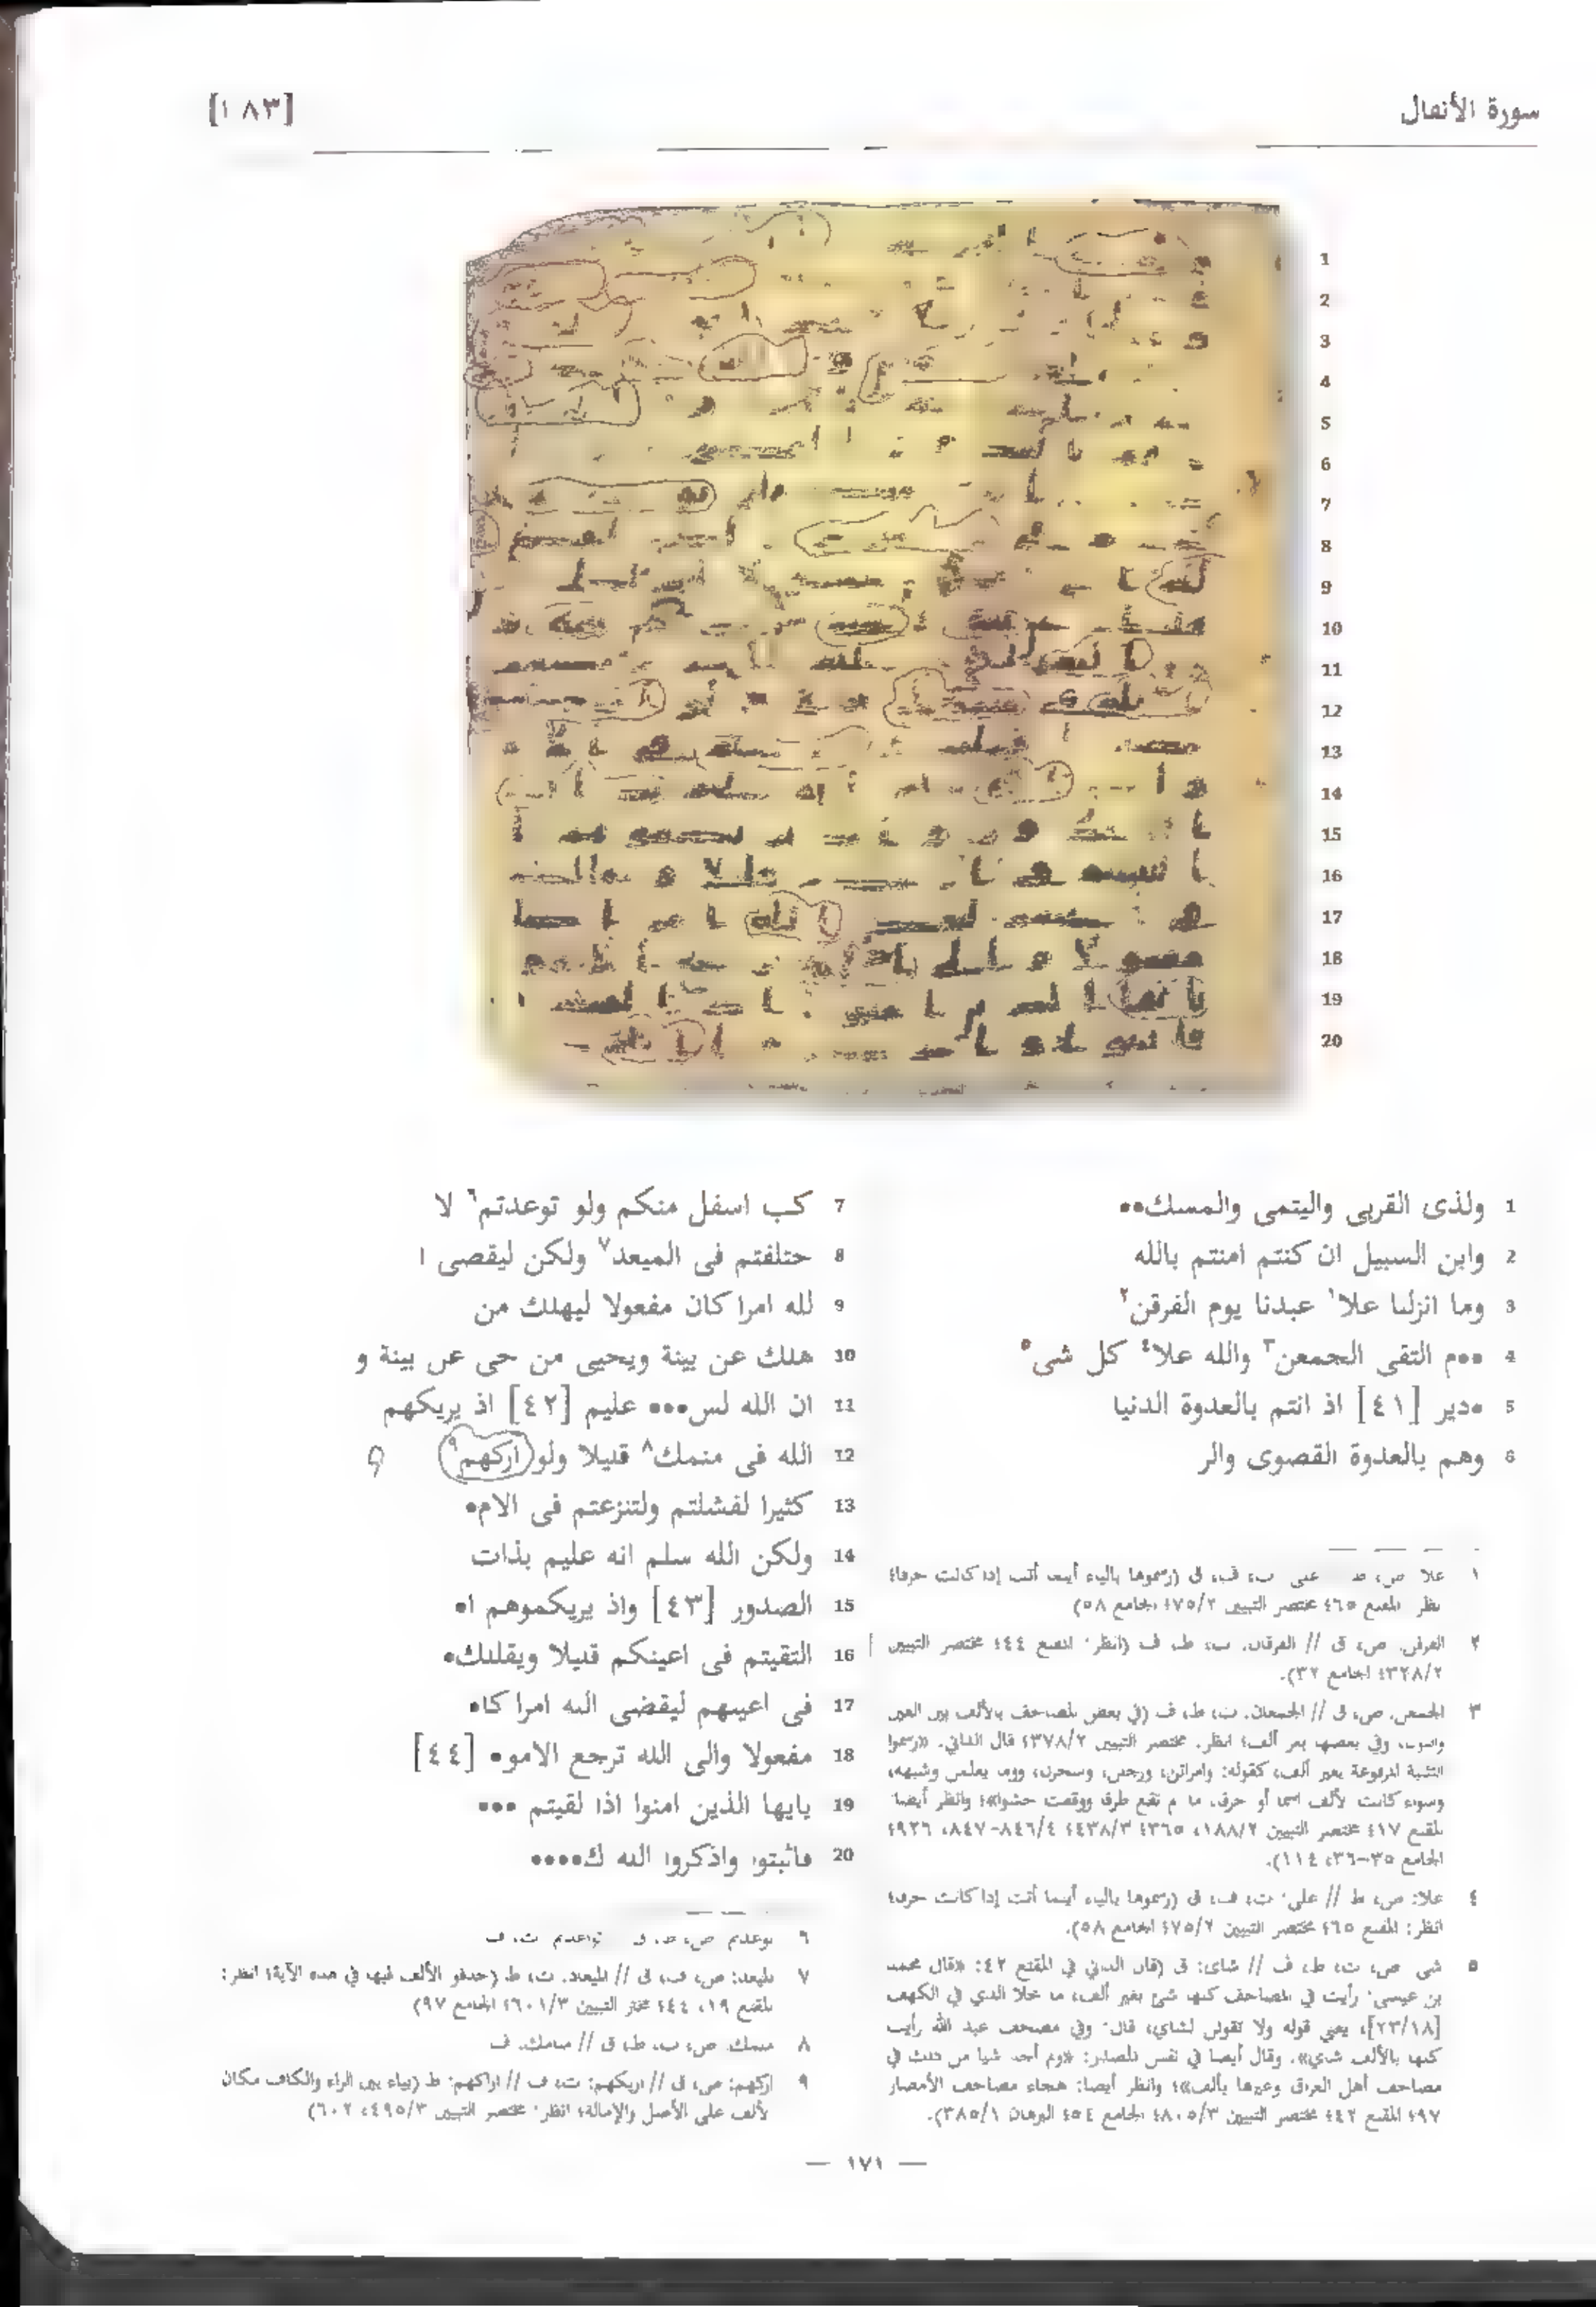 سورة الأنفال
[١٨٣]
1
2
3
4
5
6
7
8
9
10
11
12
13
14
15
16
17
18
19
20
1 ولذى القربى واليتمى والمسك••
2 وابن السبيل ان كنتم امنتم بالله
3 وما انزلنا علا١ عبدنا يوم الفرقن٢
4 ••م التقى الجمعن٣ والله علا٤ كل شى٥
5 •دير [٤١] اذ انتم بالعدوة الدنيا
6 وهم بالعدوة القصوى والر
7 كب اسفل منكم ولو توعدتم٦ لا
8 حتلفتم فى الميعد٧ ولكن ليقصى ا
9 لله امرا كان مفعولا ليهلك من
10 هلك عن بينة ويحيى من حى عن بينة و
11 ان الله لس••• عليم [٤٢] اذ يريكهم
12 الله فى منمك٨ قليلا ولو اركهم٩
13 كثيرا لفشلتم ولتنزعتم فى الام•
14 ولكن الله سلم انه عليم بذات
15 الصدور [٤٣] واذ يريكموهم ا•
16 التقيتم فى اعينكم قليلا ويقللك•
17 فى اعينهم ليقضى الله امرا كا•
18 مفعولا والى الله ترجع الامو• [٤٤]
19 يايها الذين امنوا اذا لقيتم •••
20 فاثبتوا واذكروا الله ك••••
١ علا ص، ط على ت، ف، ق (رسموها بالياء أينما أتت إذا كانت حرفا؛
نظر المقنع ٦٥؛ مختصر التبيين ٧٥/٢؛ الجامع ٥٨)
٢ الفرقن. ص، ق // الفرقان. ت، ط، ف (انظر: المقنع ٤٤؛ مختصر التبيين
٣٢٨/٢؛ الجامع ٣٢).
٣ الجمعن. ص، ق // الجمعان. ت، ط، ف (في بعض المصاحف بالألف بين العين
والنون، وفي بعضها بغير ألف؛ انظر. مختصر التبيين ٣٧٨/٢؛ قال الداني. «رسموا
التثنية المرفوعة بغير ألف، كقوله: وامراتن، ورجلن، وسحرن، وما يعلمن وشبهه،
وسواء كانت الألف اسما أو حرف، ما لم تقع طرفا ووقعت حشوا»؛ وانظر أيضا:
المقنع ١٧؛ مختصر التبيين ١٨٨/٢، ٣٦٥؛ ٤٣٨/٣؛ ٨٤٦/٤-٨٤٧، ٩٢٦؛
الجامع ٣٥-٣٦، ١١٤).
٤ علا: ص، ط // على: ت، ف، ق (رسموها بالياء أينما أتت إذا كانت حرفا؛
انظر: المقنع ٦٥؛ مختصر التبيين ٧٥/٢؛ الجامع ٥٨).
٥ شى ص، ت، ط، ف // شاى: ق (قال الداني في المقنع ٤٢: «قال محمد
بن عيسى: رأيت في المصاحف كلها شئ بغير ألف، ما خلا الذي في الكهف
[٢٣/١٨]، يعني قوله ولا تقولن لشاي، قال: وفي مصحف عبد الله رأيت
كلها بالألف شاي». وقال أيضا في نفس المصدر: «ولم أجد شيا من ذلك في
مصاحف أهل العراق وغيرها بألف»؛ وانظر أيضا: هجاء مصاحف الأمصار
٩٧؛ المقنع ٤٢؛ مختصر التبيين ٨٠٥/٣؛ الجامع ٥٤؛ البرهان ٣٨٥/١).
٦ توعدتم ص، ط، ق تواعدتم ت، ف
٧ الميعد: ص، ف، ق // الميعاد. ت، ط (حذفو الألف فيها في هذه الآية؛ انظر:
المقنع ١٩، ٤٤؛ مختر التبيين ٦٠١/٣؛ الجامع ٩٧)
٨ منمك. ص، ت، ط، ق // منامك. ف
٩ اركهم: ص، ق // اريكهم: ت، ف // اراكهم: ط (بياء بين الراء والكاف مكان
لألف على الأصل والإمالة؛ انظر: مختصر التبيين ٤٩٥/٣، ٦٠٢)
— ١٧١ —